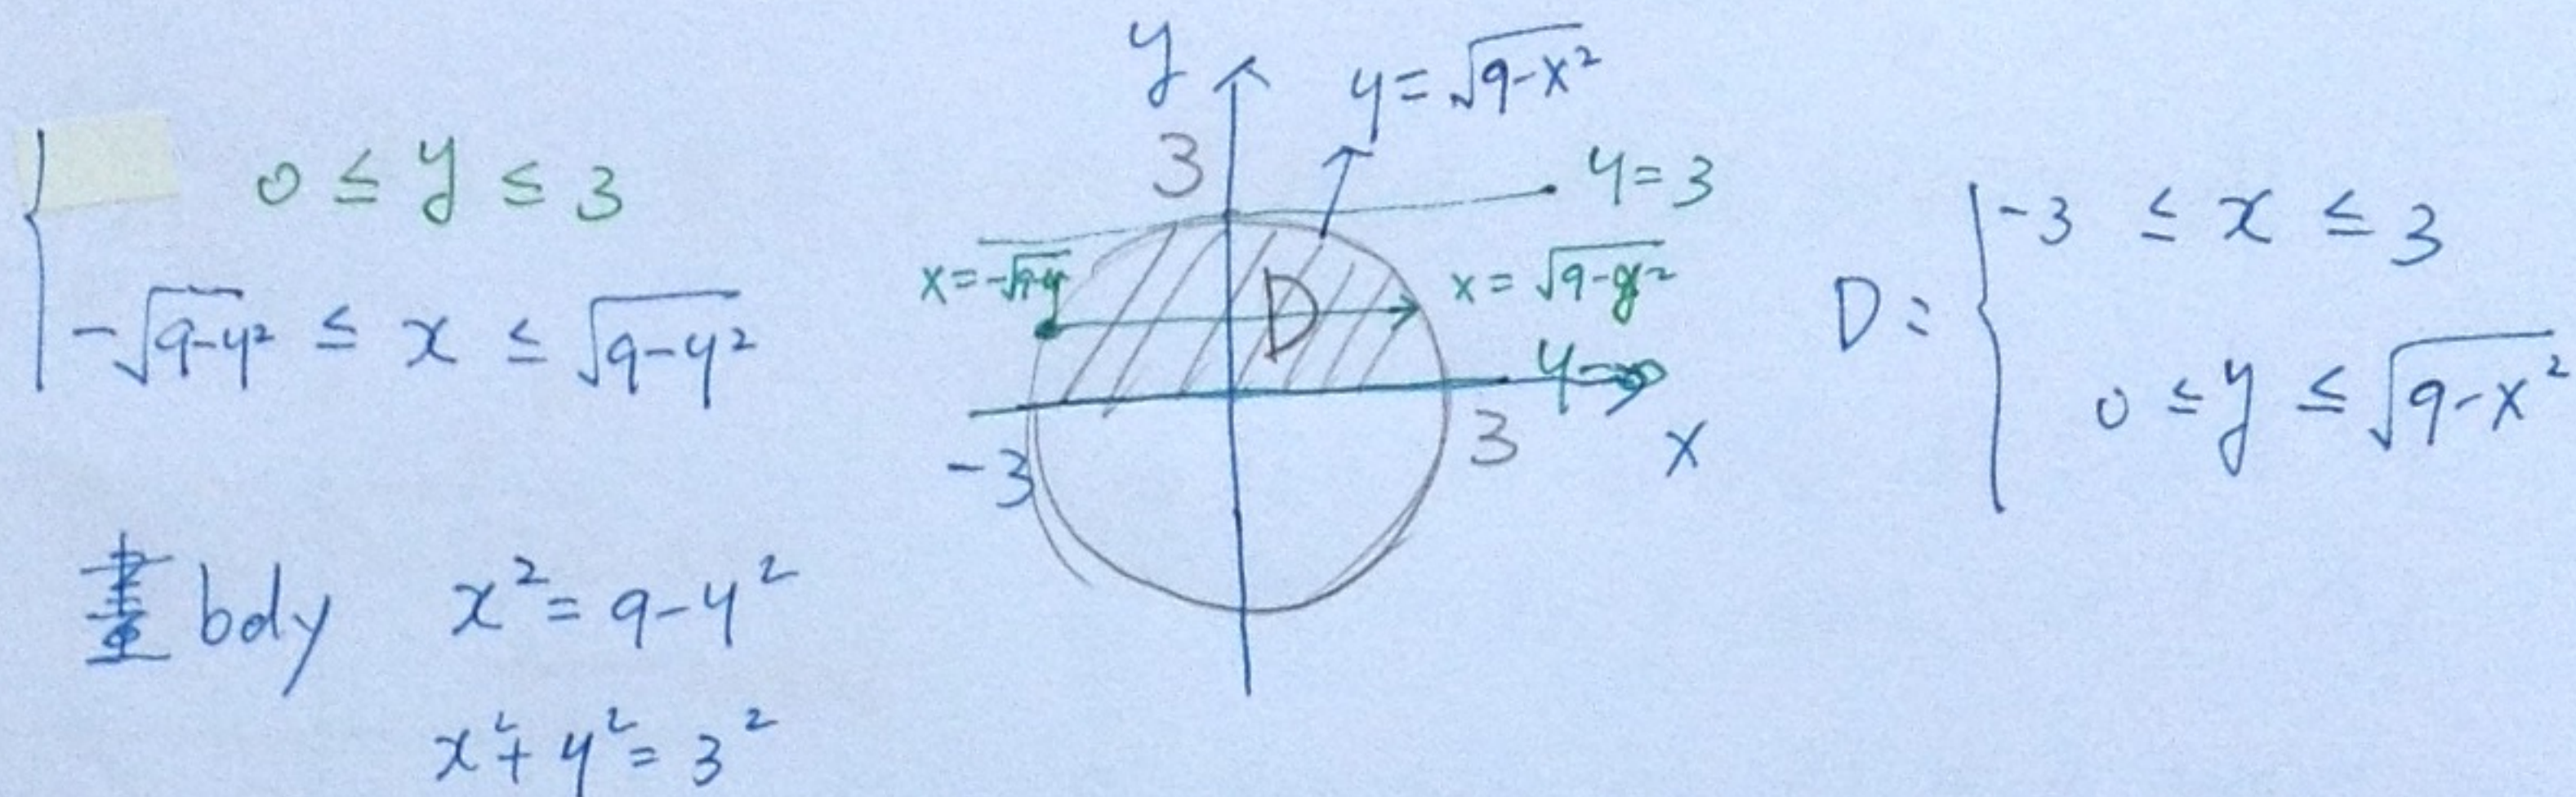 0 ≤ y ≤ 3
-√(9-y²) ≤ x ≤ √(9-y²)
畫 body x² = 9-y²
x² + y² = 3²
y
y = √(9-x²)
3
y = 3
x = -√(9-y
x = √(9-y²)
D
y=0
-3
3
x
D = { -3 ≤ x ≤ 3
0 ≤ y ≤ √(9-x²)